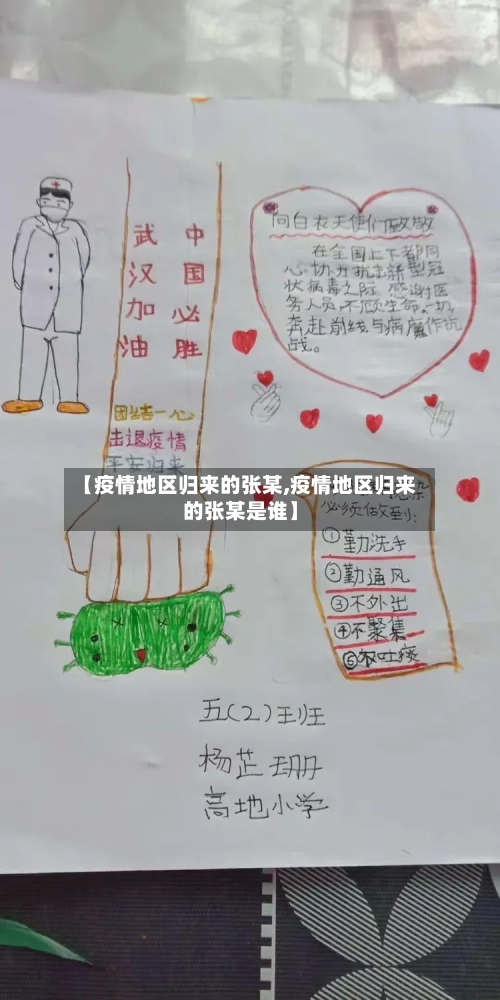 武汉加油
中国必胜
团结一心
击退疫情
平安归来
向白衣天使们致敬
在全国上下都同
心协力抗击新型冠
状病毒之际,感谢医
务人员,不顾生命,一切
奔赴前线与病魔作抗
战。
【疫情地区归来的张某,疫情地区归来
的张某是谁】
必须做到:
①勤洗手
②勤通风
③不外出
④不聚集
⑤不吐痰
五(2)班
杨芷珊
高地小学